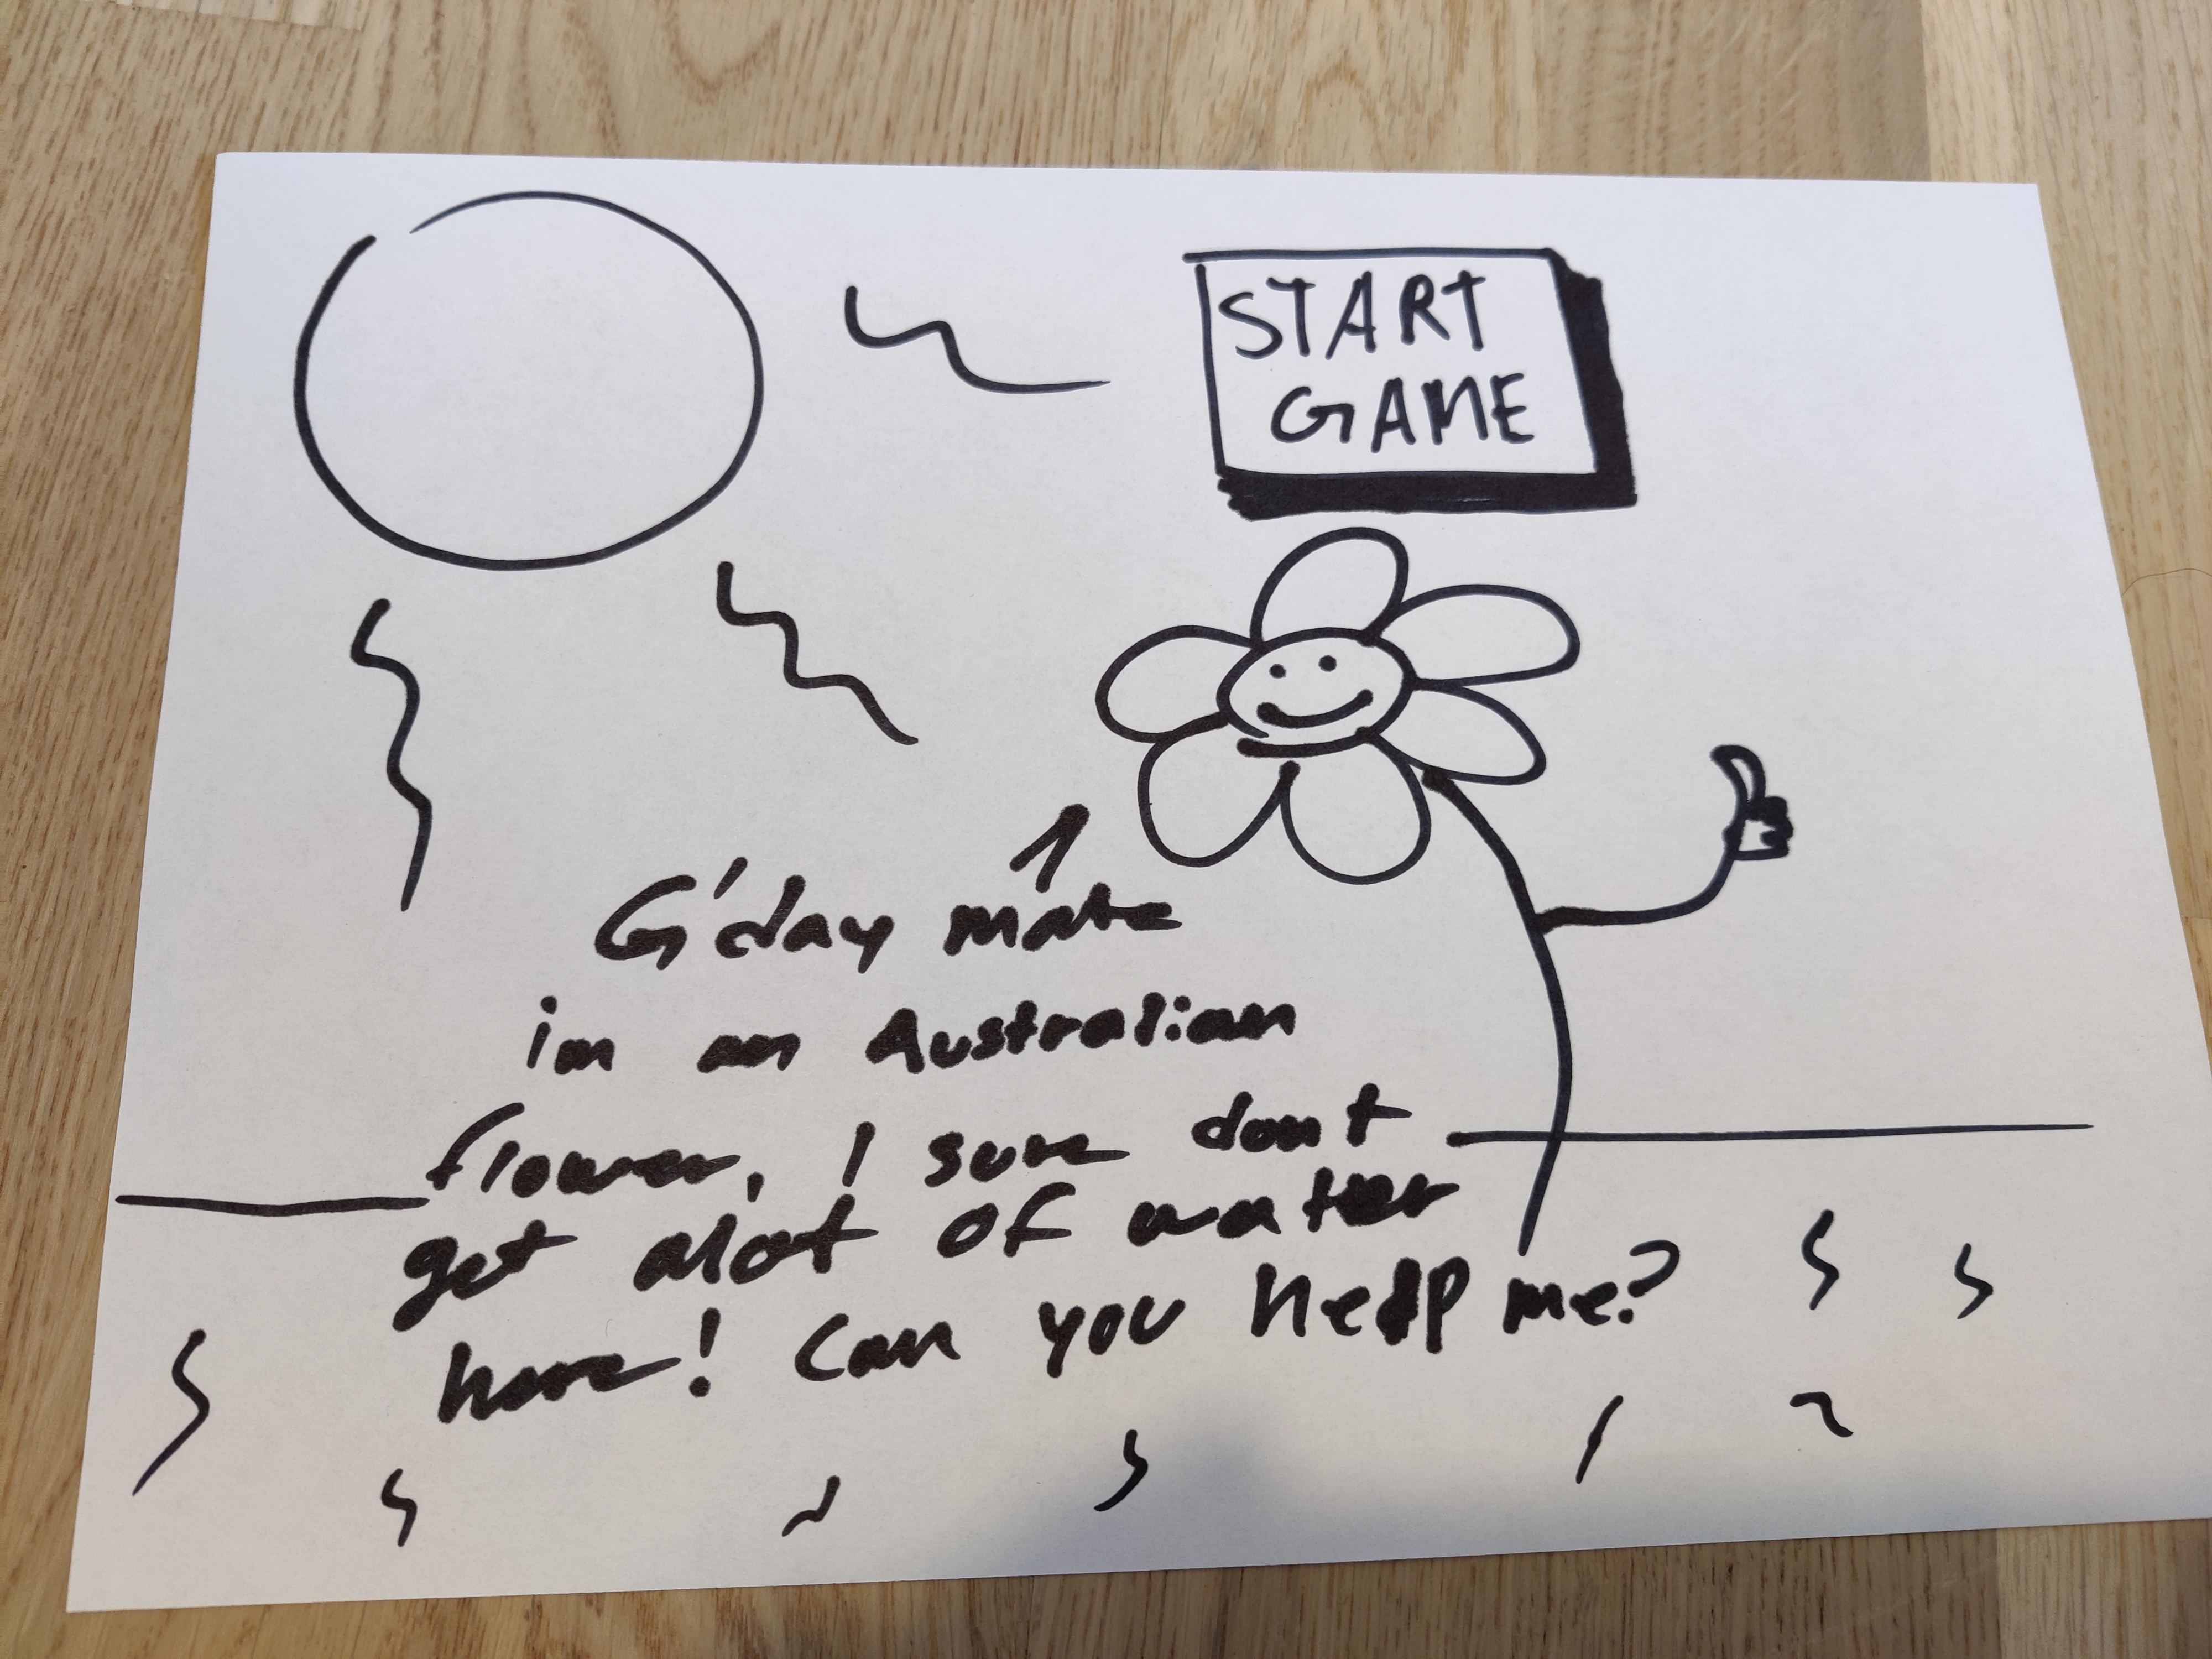 START
GAME
G'day mate
im an Australian
flower, I sure dont
get alot of water
here! Can you help me?